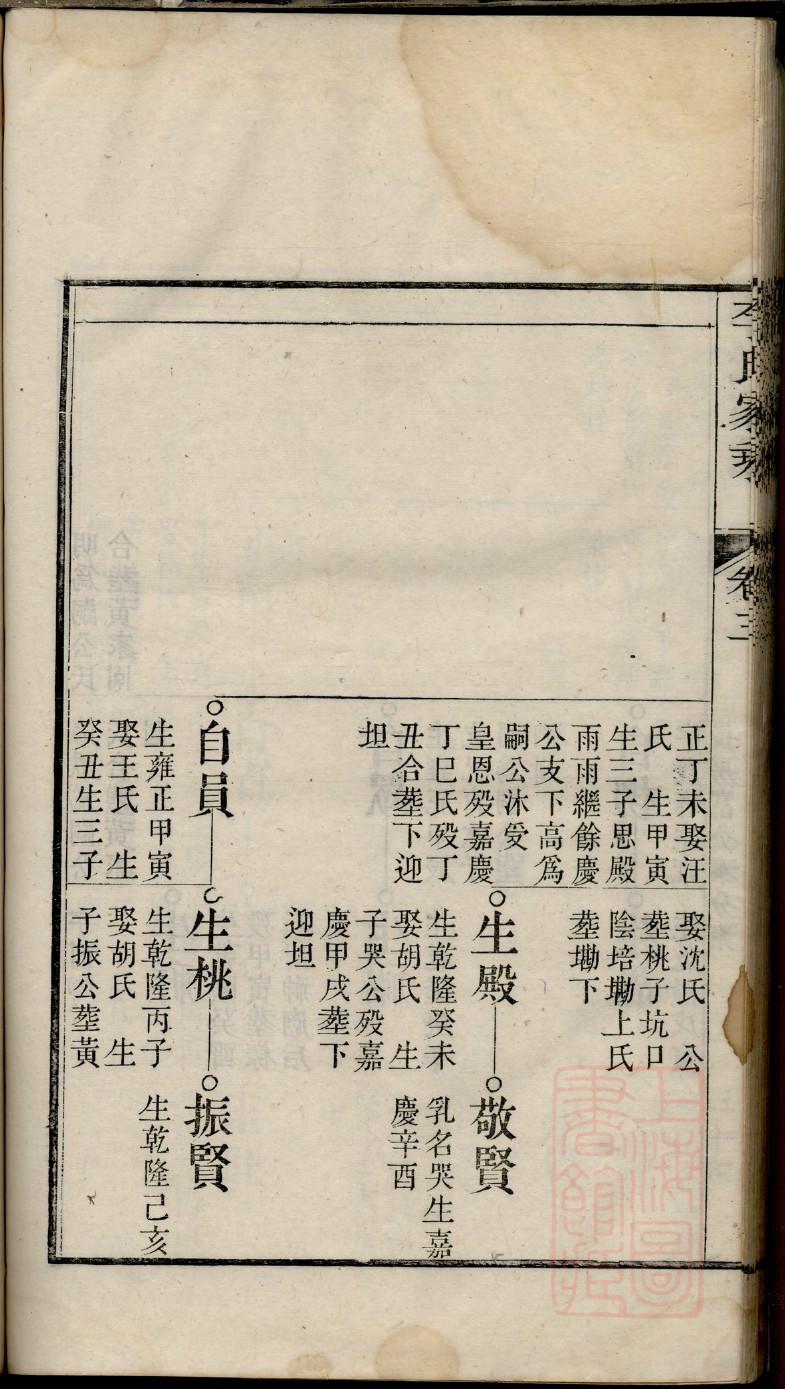 李氏家乘
卷三
正丁未娶汪
氏　生甲寅
生三子思殿
雨雨繼餘慶
公支下高為
嗣公沐受
皇恩殁嘉慶
丁巳氏殁丁
丑合塟下迎
坦
自員
生雍正甲寅
娶王氏　生
癸丑生三子
娶沈氏　公
塟桃子坑口
陰培墈上氏
塟墈下
生殿
生乾隆癸未
娶胡氏　生
子哭公殁嘉
慶甲戌塟下
迎坦
生桃
生乾隆丙子
娶胡氏　生
子振公塟黃
敬賢
乳名哭生嘉
慶辛酉
振賢
生乾隆己亥